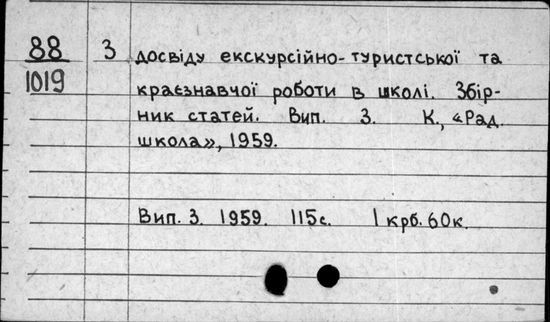 88 З досвіду екскурсійно-туристської та
1019 краєзнавчої роботи в школі. Збір-
ник статей. Вип. 3. К., «Рад.
школа», 1959.
Вип. 3. 1959. 115с. 1 крб. 60к.